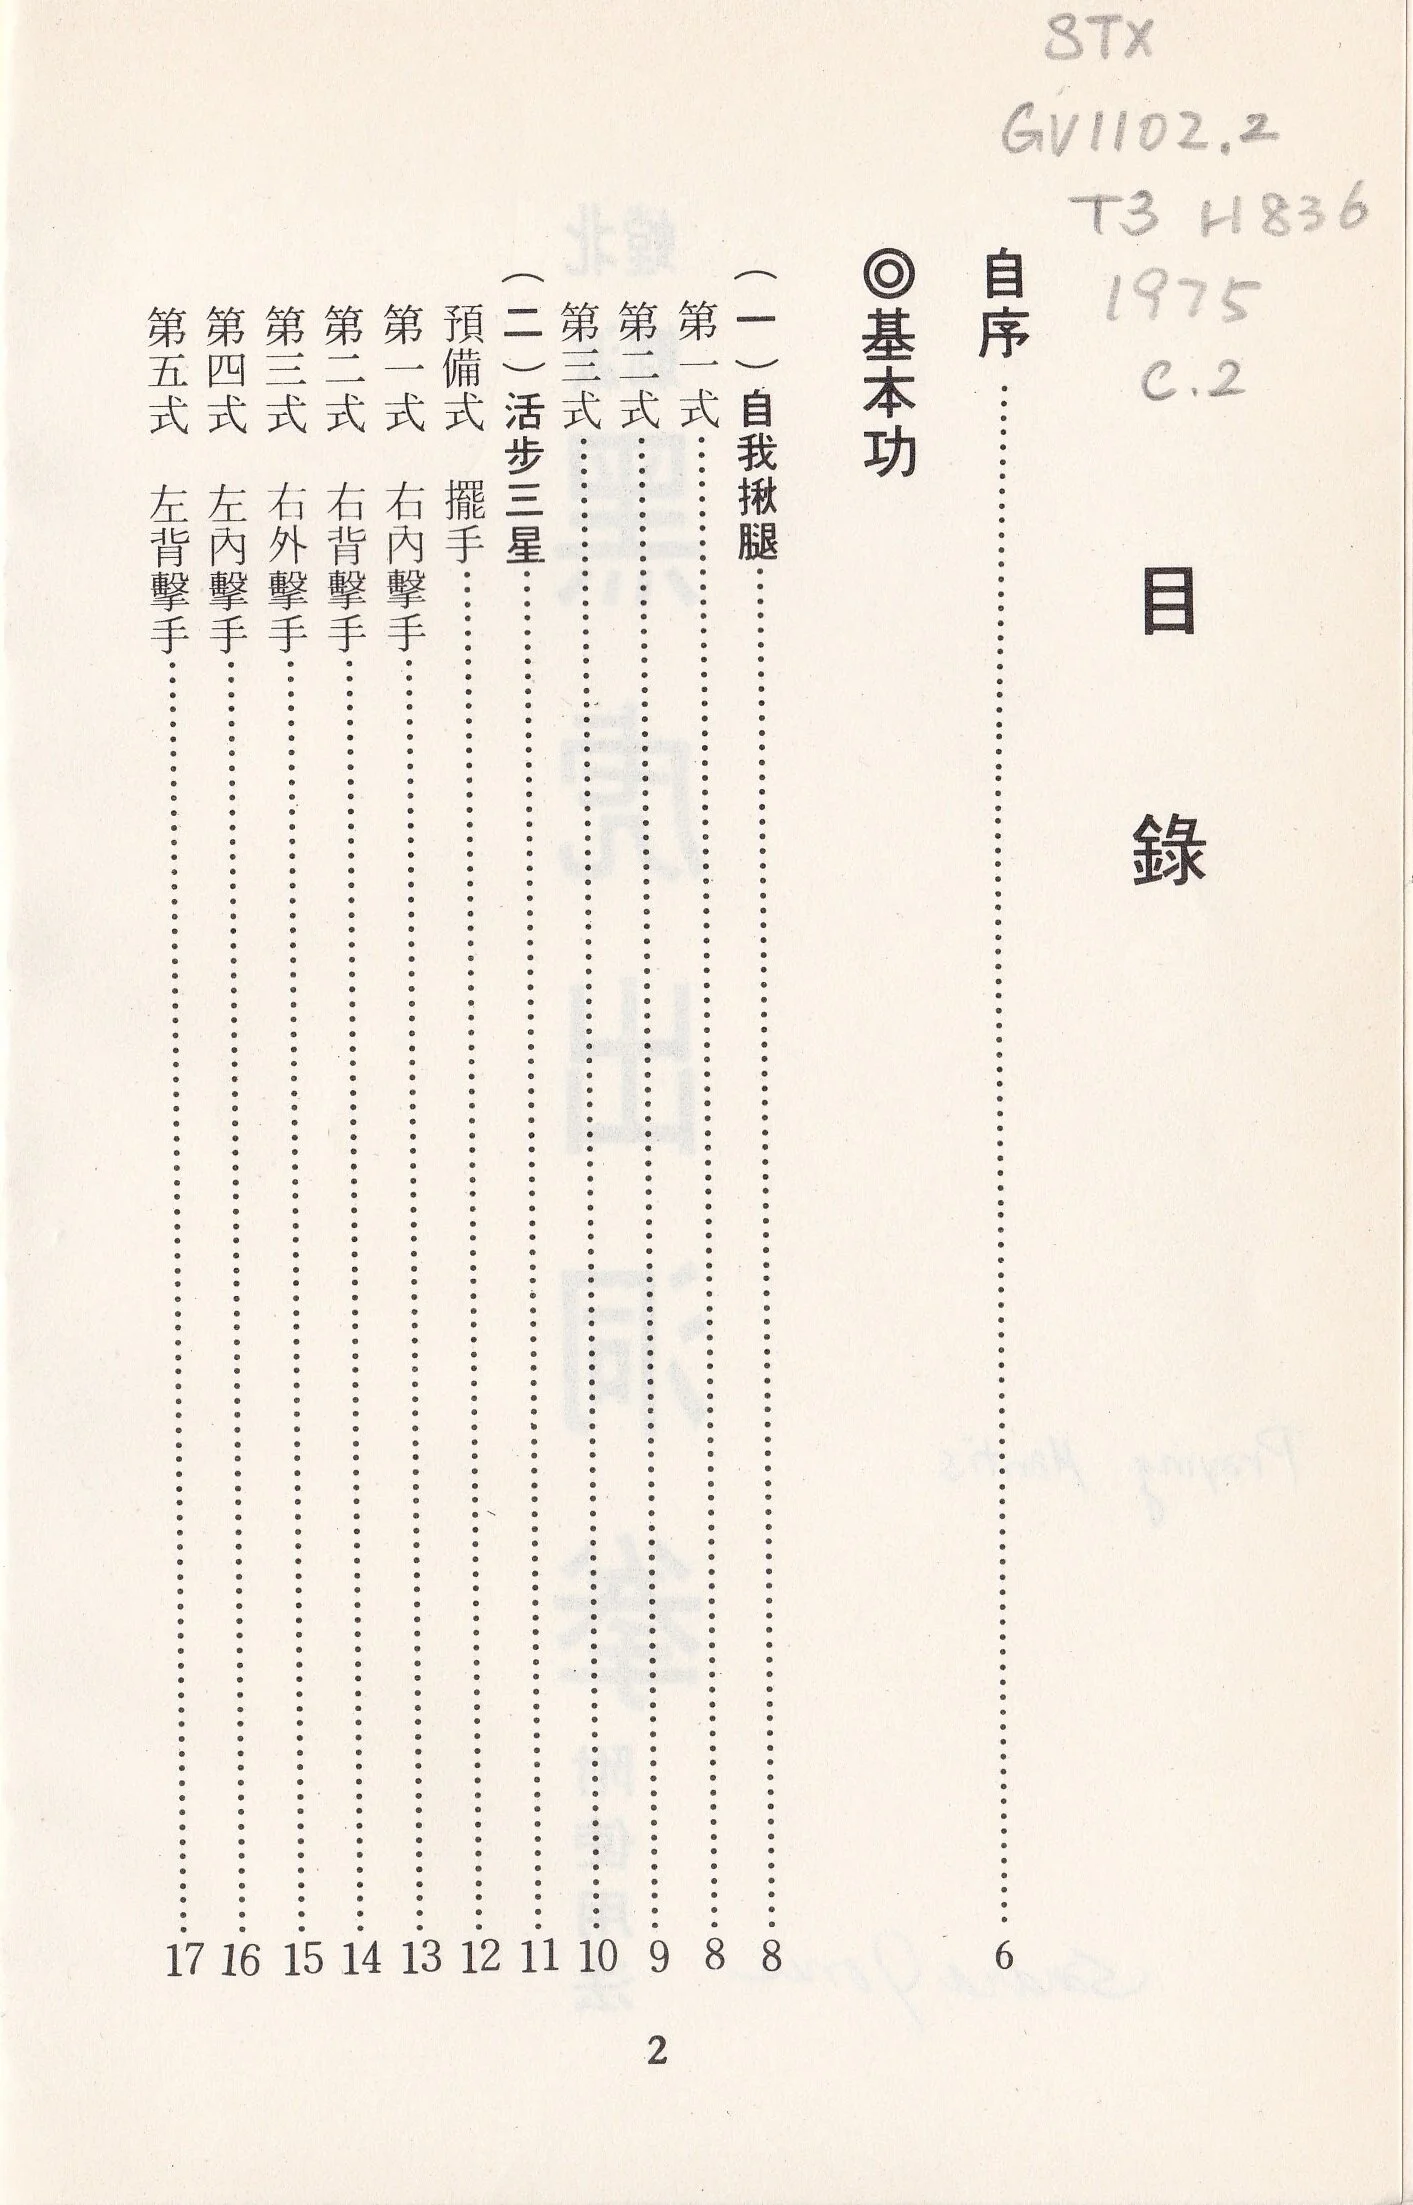 STX
GV1102.2
T3 H836
1975
C.2
目錄
自序……6
◎基本功
（一）自我揪腿……8
第一式……8
第二式……9
第三式……10
（二）活步三星……11
預備式 擺手……12
第一式 右內擊手……13
第二式 右背擊手……14
第三式 右外擊手……15
第四式 左內擊手……16
第五式 左背擊手……17
2